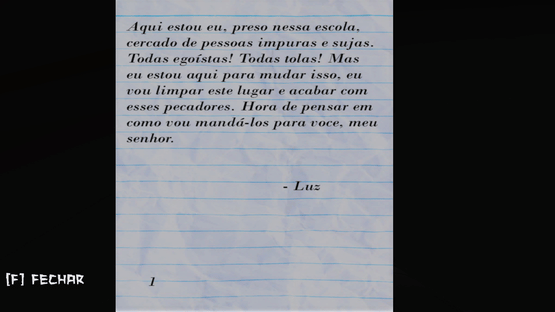 Aqui estou eu, preso nessa escola,
cercado de pessoas impuras e sujas.
Todas egoístas! Todas tolas! Mas
eu estou aqui para mudar isso, eu
vou limpar este lugar e acabar com
esses pecadores. Hora de pensar em
como vou mandá-los para voce, meu
senhor.
- Luz
[F] FECHAR
1